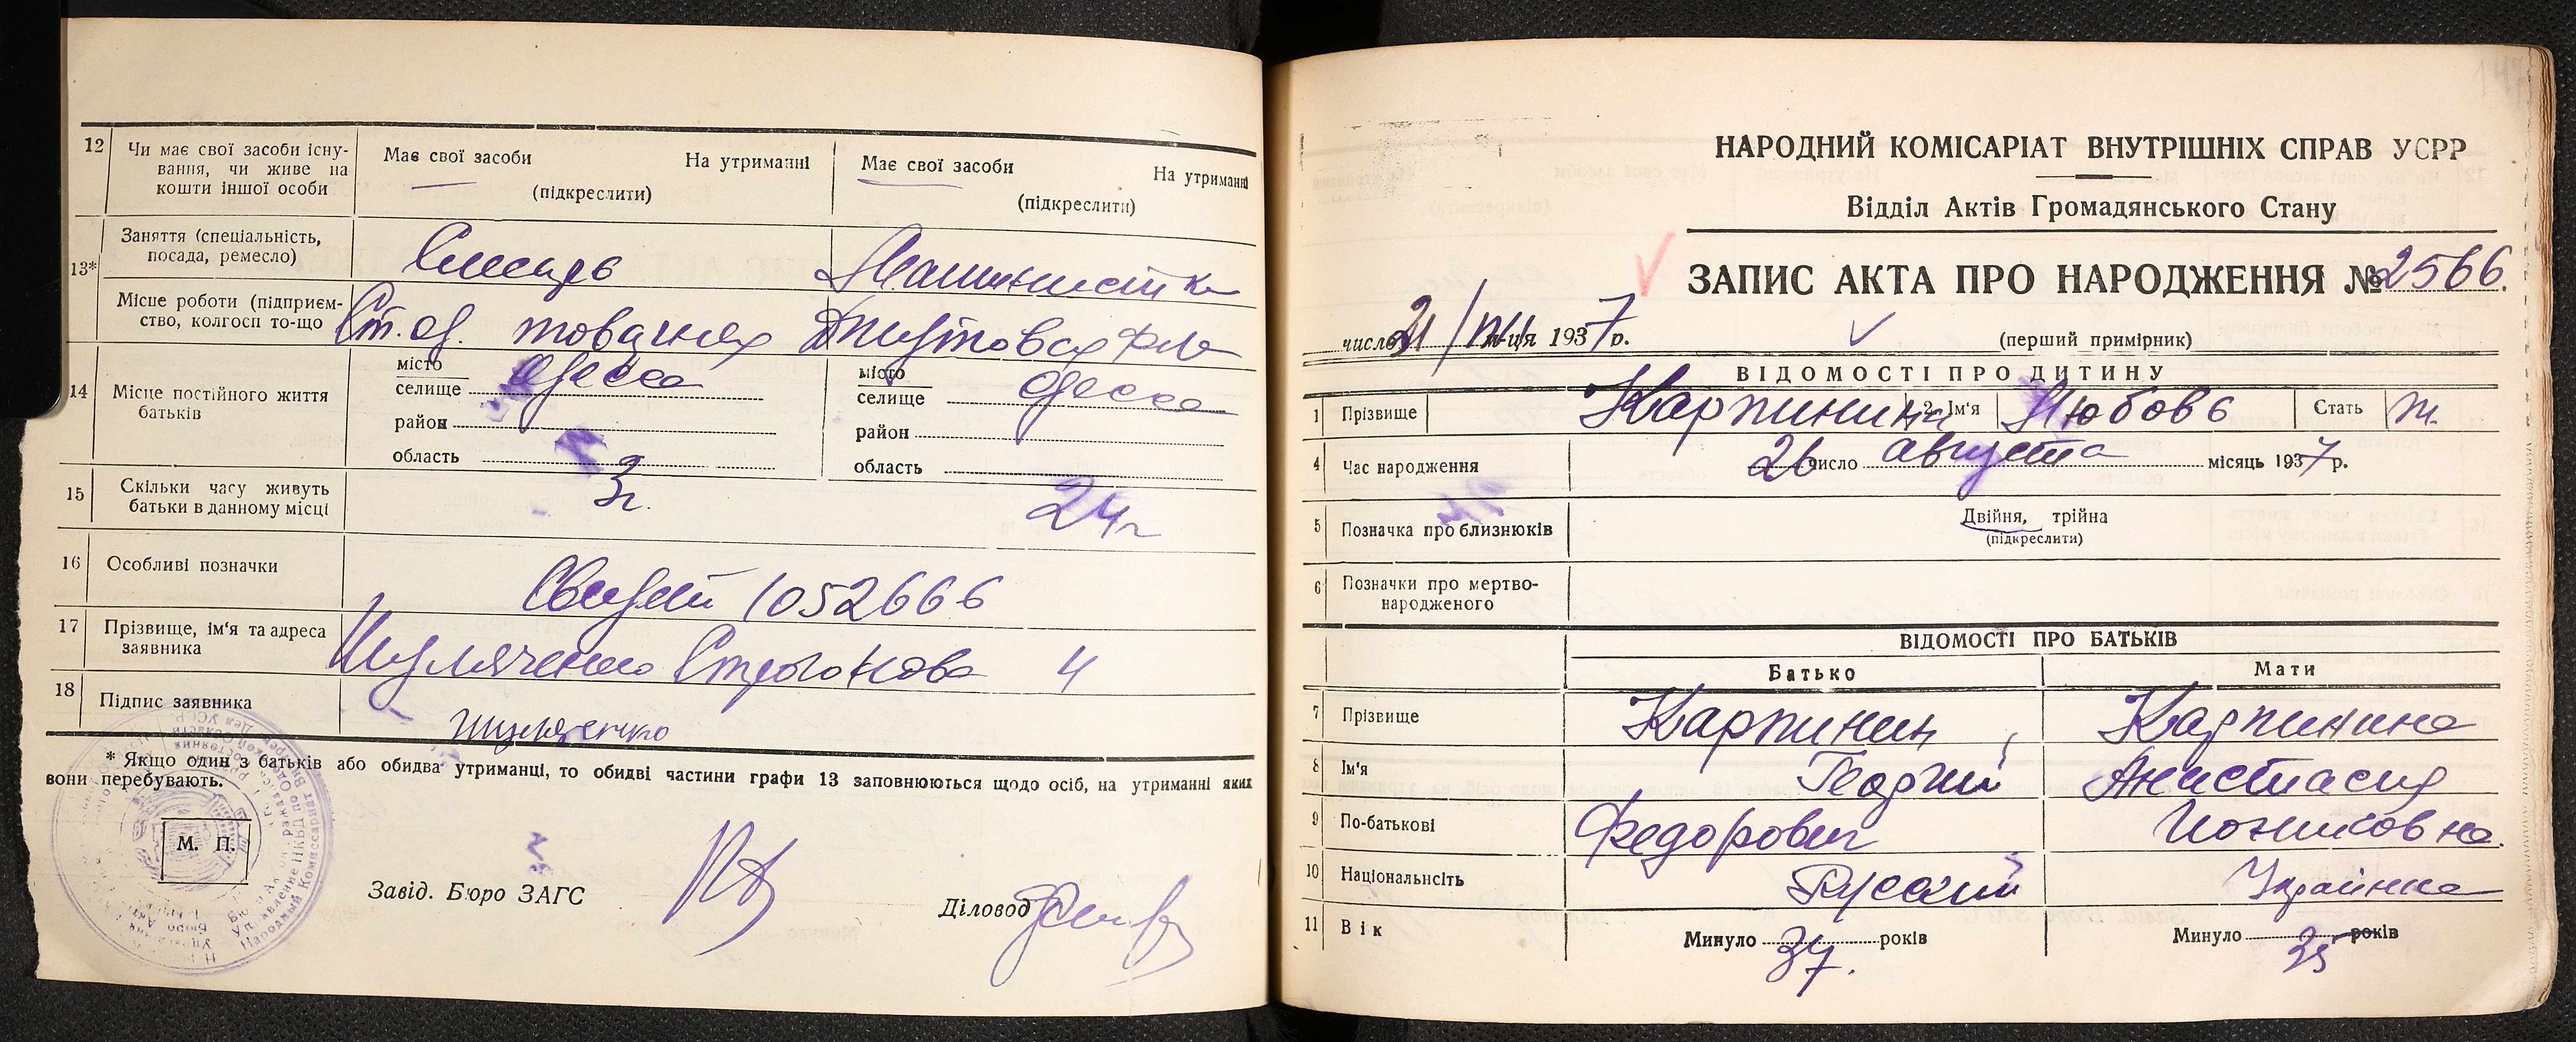 12 Чи має свої засоби існу-
вання, чи живе на
кошти іншої особи
Має свої засоби На утриманні
(підкреслити)
Має свої засоби На утриманні
(підкреслити)
13* Заняття (спеціальність,
посада, ремесло)
Слесарь Машинистка
Місце роботи (підприєм-
ство, колгосп то-що
Ст. Од. товарная
14 Місце постійного життя
батьків
місто
селище Одесса
район
область
місто
селище Одесса
район
область
15 Скільки часу живуть
батьки в данному місці
3 г. 24 г
16 Особливі позначки
Свидет 1052666
17 Прізвище, ім'я та адреса
заявника
Шуляченко Строганова 4
18 Підпис заявника
Шуляченко
* Якщо один з батьків або обидва утриманці, то обидві частини графи 13 заповнюються щодо осіб, на утриманні яких
вони перебувають.
М. П.
Завід. Бюро ЗАГС
Діловод
НАРОДНИЙ КОМІСАРІАТ ВНУТРІШНІХ СПРАВ УСРР
Відділ Актів Громадянського Стану
ЗАПИС АКТА ПРО НАРОДЖЕННЯ № 2566.
число 21 / м-ця 1937 р.
(перший примірник)
ВІДОМОСТІ ПРО ДИТИНУ
1 Прізвище Карпинина 2 Ім'я Любовь Стать ж.
4 Час народження 26 число августа місяць 1937 р.
5 Позначка про близнюків
Двійня, трійна
(підкреслити)
6 Позначки про мертво-
народженого
ВІДОМОСТІ ПРО БАТЬКІВ
Батько Мати
7 Прізвище Карпинин Карпинина
8 Ім'я Георгий Анастасия
9 По-батькові Федорович
10 Національність Русский Украинка
11 Вік Минуло 37. років Минуло 25 років